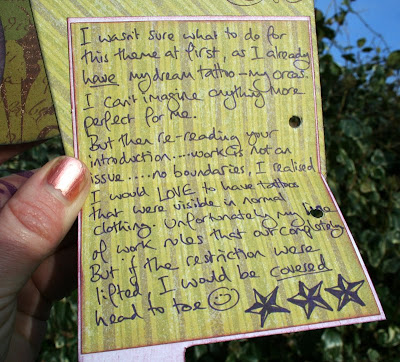 I wasn't sure what to do for
this theme at first, as I already
have my dream tattoo - my orcas.
I can't imagine anything more
perfect for me.
But then re-reading your
introduction....work is not an
issue.....no boundaries, I realised
I would LOVE to have tattoos
that were visible in normal
clothing. Unfortunately my line
of work rules that out completely.
But if the restriction were
lifted I would be covered
head to toe